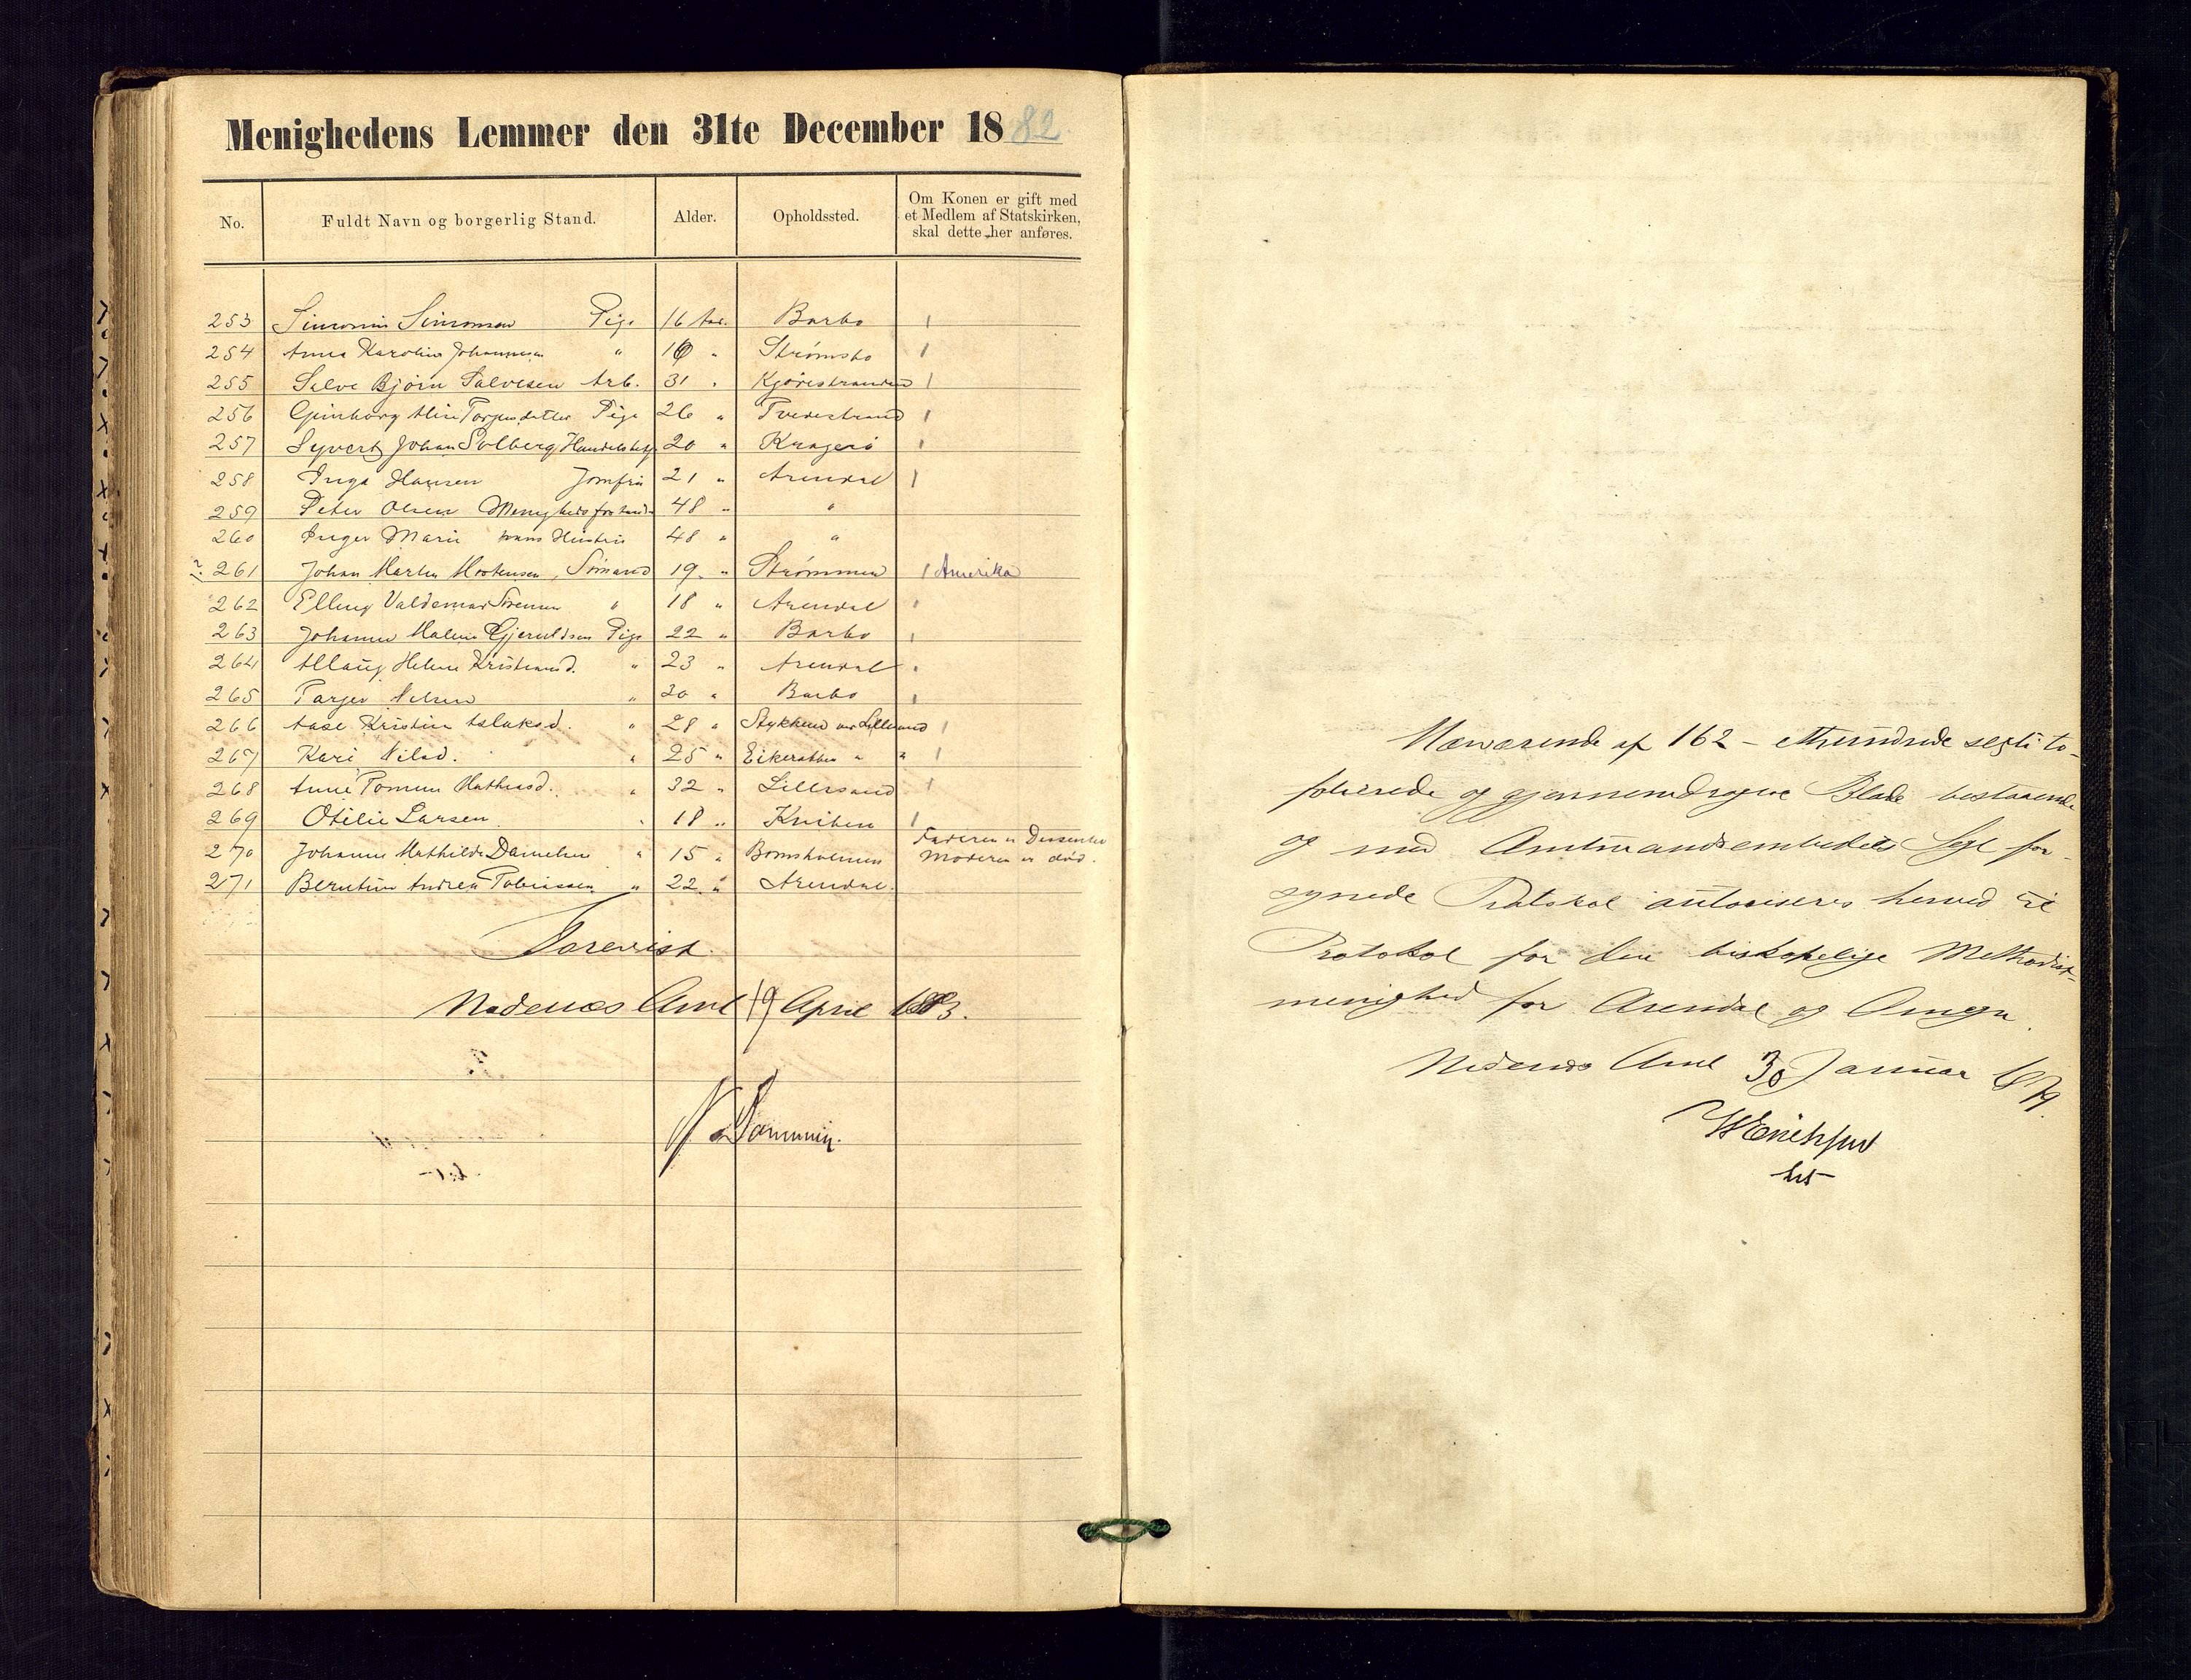 Menighedens Lemmer den 31te December 1882.
No. Fuldt Navn og borgerlig Stand. Alder. Opholdssted. Om Konen er gift med et Medlem af Statskirken, skal dette her anføres.
253 Simonine Simonsen Pige 16 Aar. Barbo
254 Anna Karoline Johannesen " 16 " Strømsbo
255 Salve Bjørn Salvesen Arb. 31 " Kjørestranden
256 Torjusdatter Pige 26 " Tvedestrand
257 Syvert Johan Solberg 20 " Kragerö
258 Inga Hansen Jomfru 21 " Arendal
259 Peter Olsen Menighedsforstand. 48 " "
260 Inger Marie hans Hustru 48 " "
261 Johan Martin Mortensen, Sömand 19 " Strømmen Amerika
262 Elling Valdemar Sörensen " 18 " Arendal
263 Johanne Malene Gjeruldsen Pige 22 " Barbo
264 Aslaug Helene Kristiansd. " 23 " Arendal
265 Nilsen " 20 " Barbo
266 Aase Kristine Aslaksd. " 28 " Lillesand
267 Kari Nilsd. " 25 " " "
268 Anne Mathiasd. " 32 " Lillesand
269 Otilie Larsen " 18 " Kniben
270 Johanne Mathilde Danielsen " 15 " Bomsholmen Faderen er Dissenter Moderen er död.
271 Berntine Andrea Tobiassen " 22 " Arendal.
Forevist.
Nedenæs Amt 19 April 1883.
Nærværende af 162 - ethundrede sexti to -
folierede og gjennemdragne Blade bestaaende
og med Amtmandsembedets Segl for-
synede Protokol autoriseres herved til
Protokol for den biskopelige Methodist-
menighed for Arendal og Omegn.
Nedenæs Amt 30 Januar 1879.